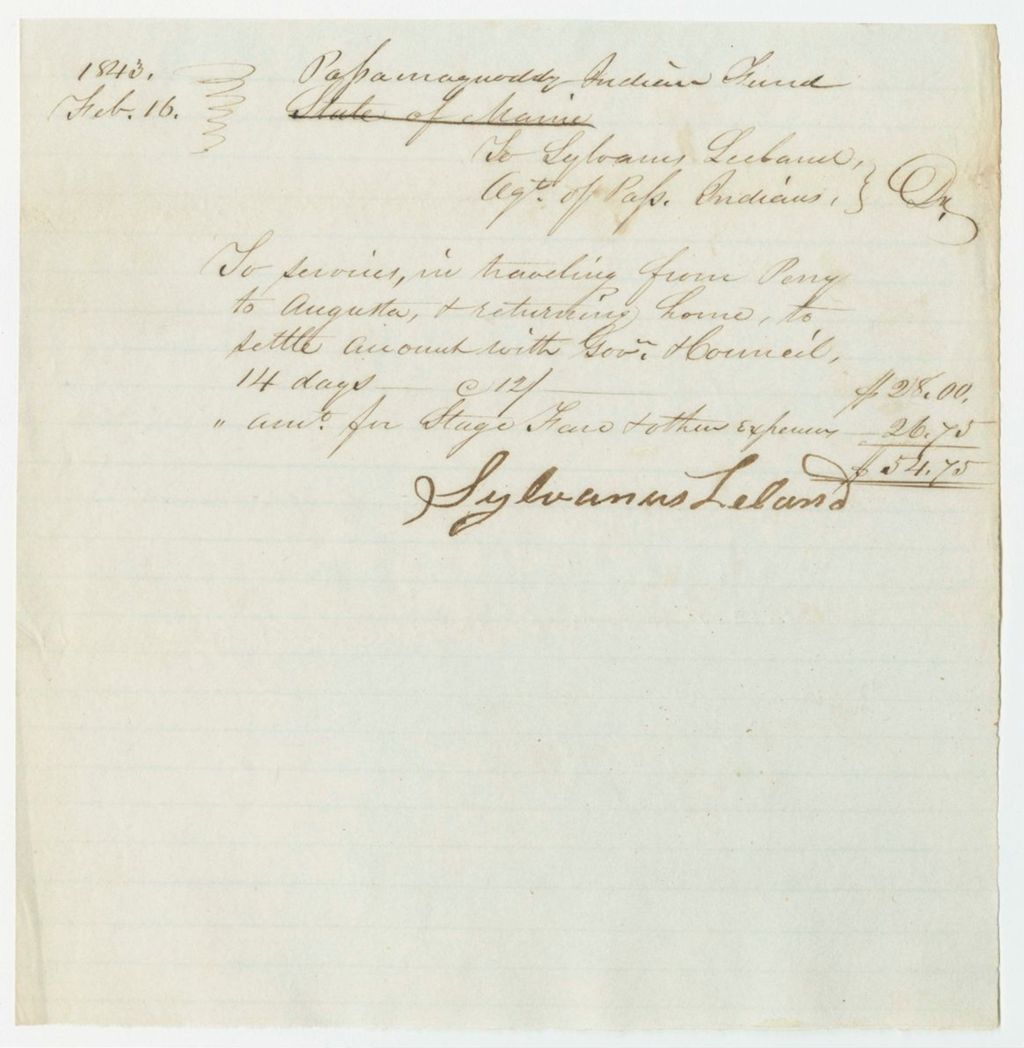 1843.
Feb. 16.
Passamaquoddy Indian Fund
State of Maine
To Sylvanus Leeland,
Agt. of Pass. Indians, } Dr.
To services, in traveling from Perry
to Augusta, & returning home, to
settle account with Govr. & Council,
14 days — @ 12/ — $28.00.
" amt. for Stage Fare & other expenses 26.75
$54.75
Sylvanus Leland